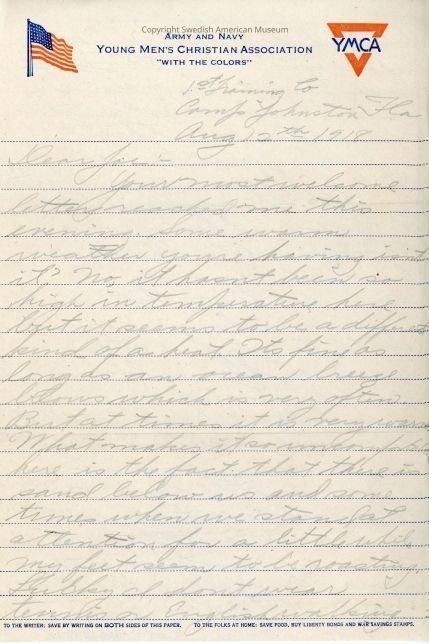 Copyright Swedish American Museum
ARMY AND NAVY
YOUNG MEN'S CHRISTIAN ASSOCIATION
"WITH THE COLORS"
YMCA
1st Training Co
Camp Johnston Fla
Aug 12th 1918
Dear Joe:-
Your most welcome
letter reached me this
evening. Some warm
weather you're having isn't
it? No, it hasn't been so
high in temperature here
but it seems to be a different
kind of a heat. Its fin as
long as an ocean breeze
blows which is very often
But at times it is very warm
What makes it so
here is the fact that there is
sand below us and some
times when we stand at
attention for a little while
my feet seem to be roasting
I don't wear
TO THE WRITER: SAVE BY WRITING ON BOTH SIDES OF THIS PAPER. TO THE FOLKS AT HOME: SAVE FOOD, BUY LIBERTY BONDS AND WAR SAVINGS STAMPS.